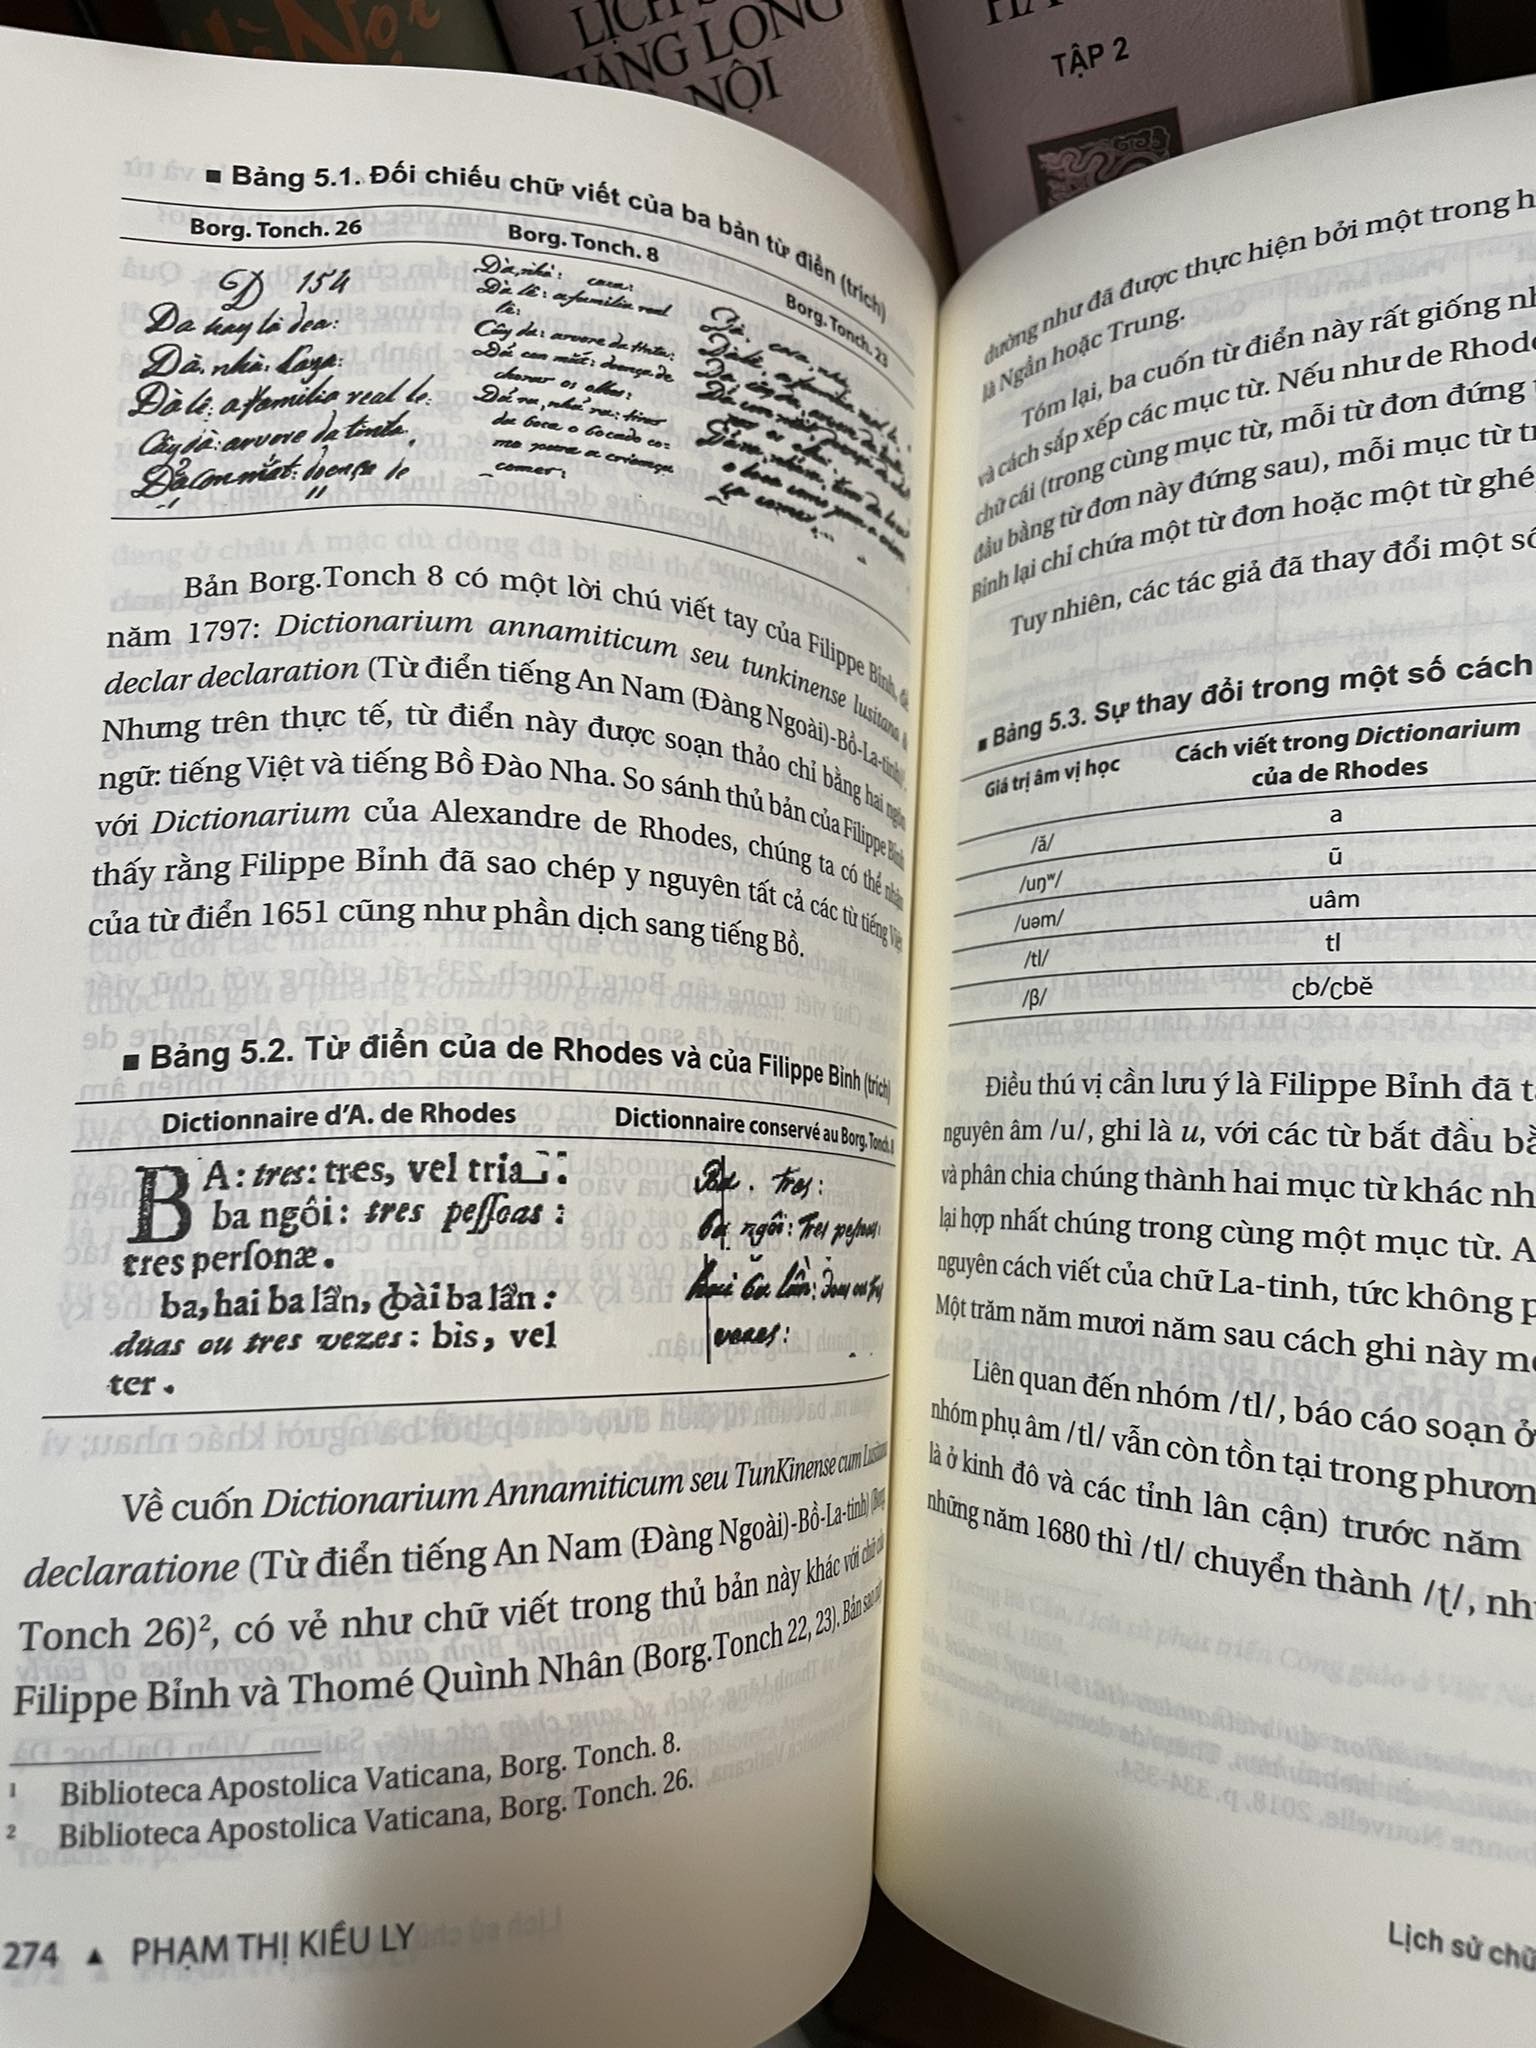 Hà Nội
LỊCH
THĂNG LONG
NỘI
TẬP 2
■ Bảng 5.1. Đối chiếu chữ viết của ba bản từ điển (trích)
Borg. Tonch. 26 Borg. Tonch. 8 Borg. Tonch. 23
Đ 154
Đa hay là dea:
Đà, nhà: Caza:
Đà lê: a familia real le:
Cây đà: arvore da tinta.
Đả con mắt: doença de
Đà, nhà: caza:
Đà lê: a familia real
lê:
Cây da: arvore da tinta:
Đả con mắt: doença de
chorar os olhos:
Đả ra, nhả ra: tirar
da boca o bocado co-
mo para a criança
comer:
Bản Borg.Tonch 8 có một lời chú viết tay của Filippe Bỉnh, đề
năm 1797: Dictionarium annamiticum seu tunkinense lusitana
declar declaration (Từ điển tiếng An Nam (Đàng Ngoài)-Bồ-La-tinh)
Nhưng trên thực tế, từ điển này được soạn thảo chỉ bằng hai ngôn
ngữ: tiếng Việt và tiếng Bồ Đào Nha. So sánh thủ bản của Filippe Bỉnh
với Dictionarium của Alexandre de Rhodes, chúng ta có thể nhận
thấy rằng Filippe Bỉnh đã sao chép y nguyên tất cả các từ tiếng Việt
của từ điển 1651 cũng như phần dịch sang tiếng Bồ.
■ Bảng 5.2. Từ điển của de Rhodes và của Filippe Bỉnh (trích)
Dictionnaire d’A. de Rhodes Dictionnaire conservé au Borg. Tonch. 8
BA: tres: tres, vel tria
ba ngôi: tres peſſoas:
tres perſonæ.
ba, hai ba lần, ꞗài ba lần:
duas ou tres vezes: bis, vel
ter.
Ba. tres:
ba ngôi: tres pessoas:
hai ba lần: duas ou tres
vezes:
Về cuốn Dictionarium Annamiticum seu TunKinense cum Lusitana
declaratione (Từ điển tiếng An Nam (Đàng Ngoài)-Bồ-La-tinh) (Borg.
Tonch 26)², có vẻ như chữ viết trong thủ bản này khác với chữ của
Filippe Bỉnh và Thomé Quình Nhân (Borg.Tonch 22, 23). Bản sao này
¹ Biblioteca Apostolica Vaticana, Borg. Tonch. 8.
² Biblioteca Apostolica Vaticana, Borg. Tonch. 26.
274 ▲ PHẠM THỊ KIỀU LY
dường như đã được thực hiện bởi một trong h
là Ngần hoặc Trung.
Tóm lại, ba cuốn từ điển này rất giống nh
và cách sắp xếp các mục từ. Nếu như de Rhode
chữ cái (trong cùng mục từ, mỗi từ đơn đứng t
đầu bằng từ đơn này đứng sau), mỗi mục từ tr
Bỉnh lại chỉ chứa một từ đơn hoặc một từ ghé
Tuy nhiên, các tác giả đã thay đổi một số
■ Bảng 5.3. Sự thay đổi trong một số cách
Giá trị âm vị học Cách viết trong Dictionarium
của de Rhodes
/ă/ a
/uŋʷ/ ũ
/uəm/ uâm
/tl/ tl
/β/ ꞗ/ꞗĕ
Điều thú vị cần lưu ý là Filippe Bỉnh đã t
nguyên âm /u/, ghi là u, với các từ bắt đầu bằ
và phân chia chúng thành hai mục từ khác nh
lại hợp nhất chúng trong cùng một mục từ. A
nguyên cách viết của chữ La-tinh, tức không p
Một trăm năm mươi năm sau cách ghi này mớ
Liên quan đến nhóm /tl/, báo cáo soạn ở
nhóm phụ âm /tl/ vẫn còn tồn tại trong phươn
là ở kinh đô và các tỉnh lân cận) trước năm
những năm 1680 thì /tl/ chuyển thành /ʈ/, nh
Lịch sử chữ